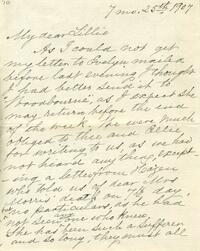 7 mo. 25th, 1907
My dear Lillie
As I could not get
my letter to Evelyn mailed
before last evening I thought
I had better send it to
Woodbourne, as I expect she
may return before the end
of the week. We were much
obliged to thee and Ellie
for writing to us, as we had
not heard any thing, except
ing a letter from
who told us of dear Mrs
Morris' death on day,
no particulars, as he had
not seen one who knew.
She has been such a sufferer
and so long, they must all